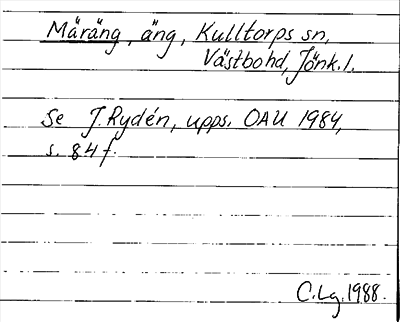 Märäng, äng, Kulltorps sn,
Västbo hd, Jönk. l.
Se J. Rydén, upps. OAU 1984,
s. 84 f.
C. Lg. 1988.